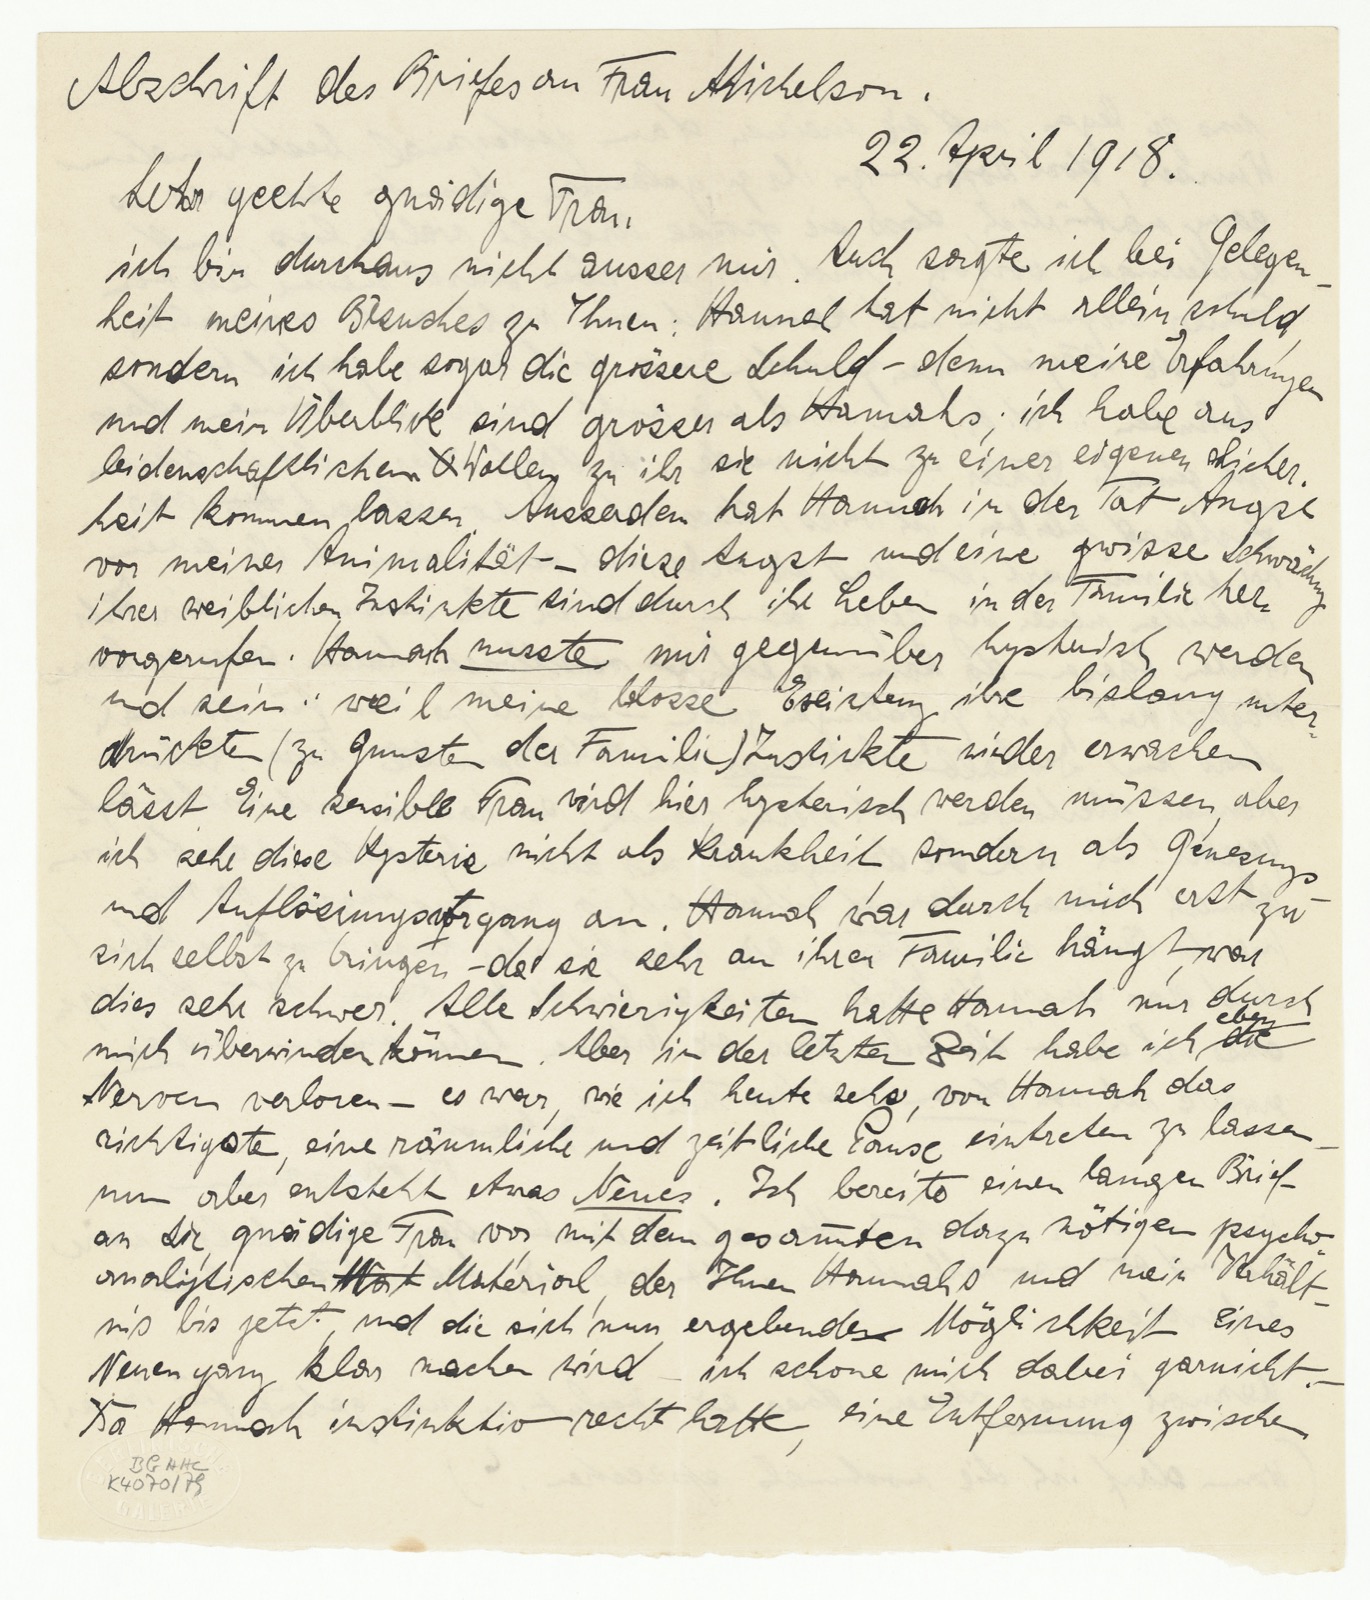 Abschrift des Briefes an Frau Michelson.
22. April 1918.
Sehr geehrte gnädige Frau,
ich bin durchaus nicht ausser mir. Auch sagte ich bei Gelegen-
heit meines Besuches zu Ihnen: Hannah hat nicht allein schuld,
sondern ich habe sogar die grössere Schuld – denn meine Erfahrungen
und mein Überblick sind grösser als Hannahs; ich habe aus
leidenschaftlichem Wollen zu ihr sie nicht zu einer eigenen Sicher-
heit kommen lassen. Ausserdem hat Hannah in der Tat Angst
vor meiner Animalität – diese Angst und eine gewisse Schwächung
ihrer weiblichen Instinkte sind durch ihr Leben in der Familie her-
vorgerufen. Hannah musste mir gegenüber hysterisch werden
und sein: weil meine blosse Existenz ihre bislang unter-
drückten (zu gunsten der Familie) Instinkte wieder erwachen
lässt. Eine sensible Frau wird hier hysterisch werden müssen, aber
ich sehe diese Hysterie nicht als Krankheit sondern als Genesungs-
und Auflösungsvorgang an. Hannah war durch mich erst zu
sich selbst zu bringen – da sie sehr an ihrer Familie hängt, war
dies sehr schwer. Alle Schwierigkeiten hatte Hannah nur durch
mich überwinden können. Aber in der letzten Zeit habe ich eben die
Nerven verloren – es war, wie ich heute sehe, von Hannah das
richtigste, eine räumliche und zeitliche Pause eintreten zu lassen –
nun aber entsteht etwas Neues. Ich bereite einen langen Brief
an Sie, gnädige Frau vor, mit dem gesamten dazu nötigen psycho-
analytischen Mat Material, der Ihnen Hannahs und mein Verhält-
nis bis jetzt, und die sich nun ergebende Möglichkeit eines
Neuen ganz klar machen wird – ich schone mich dabei garnicht. –
Da Hannah instinktiv recht hatte, eine Entfernung zwischen
BG HHC
K4070/79